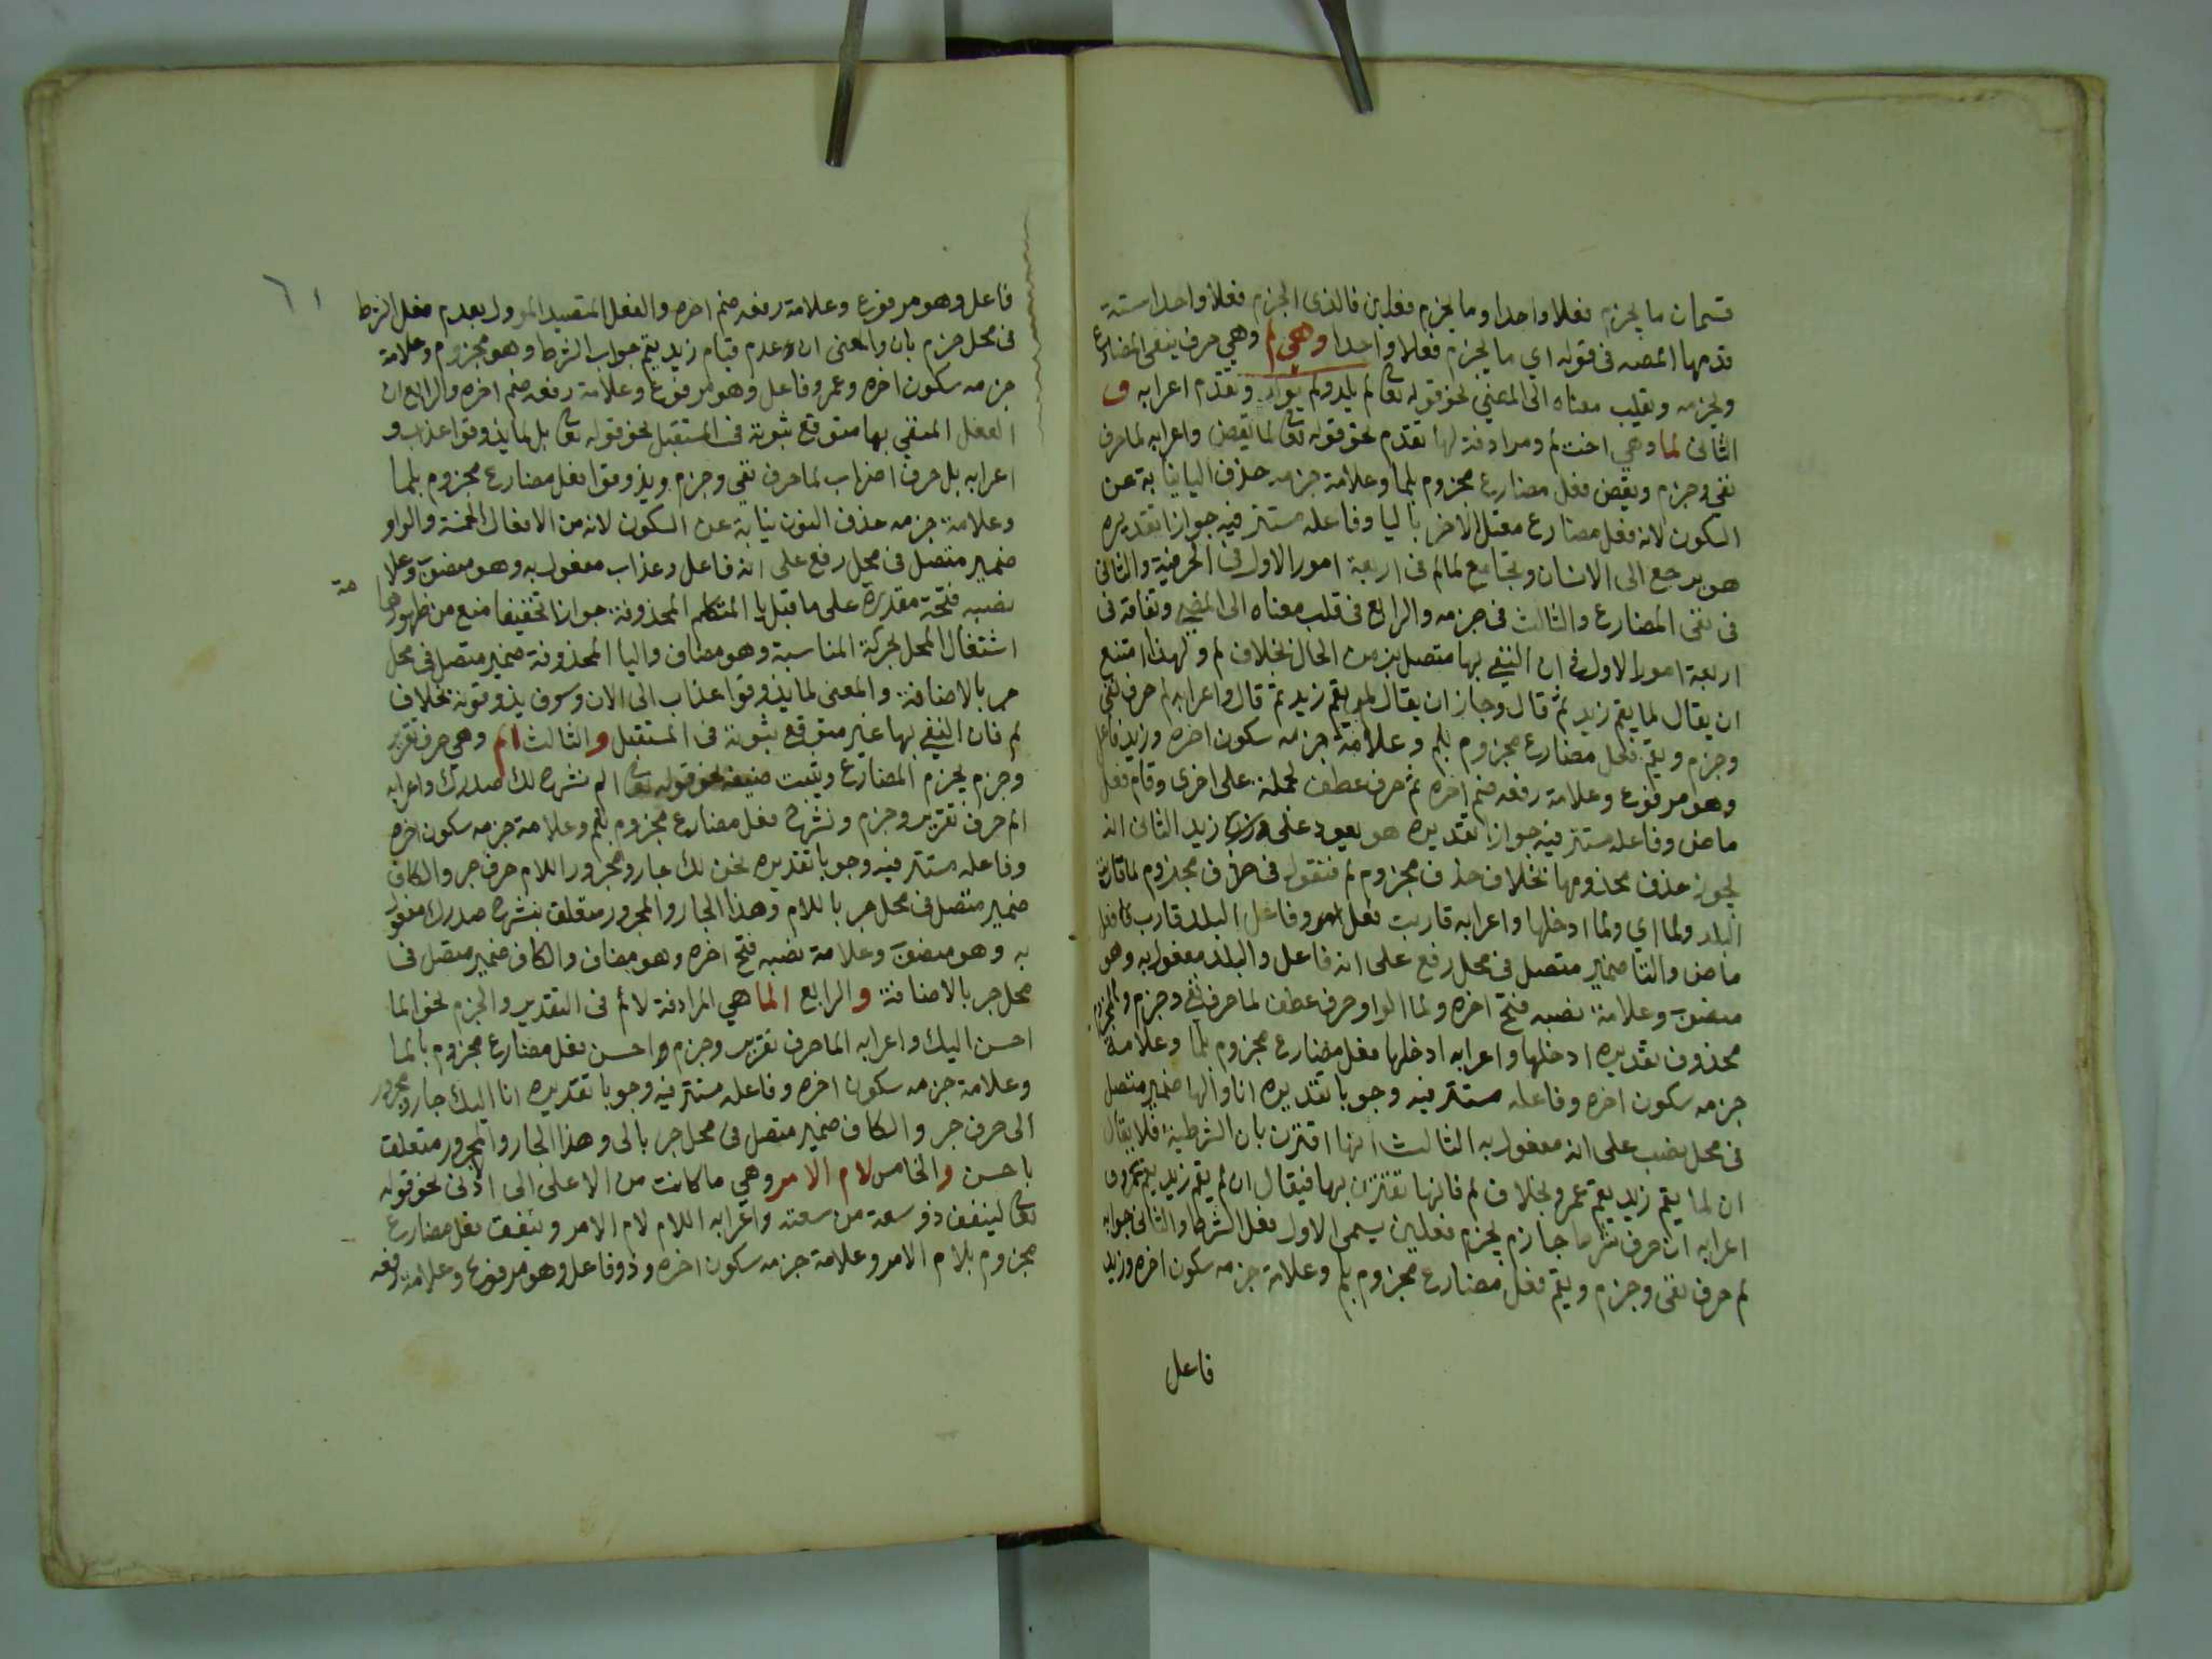 قسمان ما يجزم فعلا واحدا وما يجزم فعلين فالذى يجزم فعلا واحدا ستة
قدمها المصه فى قوله اي ما يجزم فعلا واحدا وهي لم وهي حرف ينفى المضارع
ويجزمه ويقلب معناه الى المضي نحو قوله تعا لم يلد ولم يولد وتقدم اعرابه و
الثانى لما وهي اخت لم ومرادفة لها تقدم نحو قوله تعا لما يقض واعرابه لما حرف
نفى وجزم ويقض فعل مضارع مجزوم بلما وعلامة جزمه حذف اليا نيابة عن
السكون لانه فعل مضارع معتل الاخر باليا وفاعله مستتر فيه جوازا تقديره
هو يرجع الى الانسان وتجتامع لما لم فى اربعة امور الاول فى الحرفية والثانى
فى نفى المضارع والثالث فى جزمه والرابع فى قلب معناه الى المضي وتفاقة فى
اربعة امور الاول فى ان النفي بها متصل بزمن الحال بخلاف لم ولهذا امتنع
ان يقال لما يقم زيد ثم قال وجاز ان يقال لم يقم زيد ثم قال واعرابه لم حرف نفى
وجزم ويقم فعل مضارع مجزوم بلم وعلامة جزمه سكون اخره وزيد فاعل
وهو مرفوع وعلامة رفعه ضم اخره ثم حرف عطف لجملة على اخرى وقام فعل
ماض وفاعله مستتر فيه جوازا تقديره هو يعود على زيد الثانى انه
يجوز حذف مجذومها بخلاف حذف مجزوم لم فتقول فى حذف مجذوم لما قاربت
البلد ولما اي ولما ادخلها واعرابه قاربت فعل وفاعل البلد قارب فعل
ماض والتا ضمير متصل فى محل رفع على انه فاعل والبلد مفعول به وهو
منصوب وعلامة نصبه فتح اخره ولما الواو حرف عطف لما حرف نفي وجزم والمجزوم
محذوف تقديره ادخلها واعرابه ادخلها فعل مضارع مجزوم بلما وعلامة
جزمه سكون اخره وفاعله مستتر فيه وجوبا تقديره انا والها ضمير متصل
فى محل نصب على انه مفعول به الثالث انها اقترن بان الشرطية فلا يقال
ان لما يقم زيد يقم عمرو بخلاف لم فانها تقترن بها فيقال ان لم يقم زيد يقم عمرو و
اعرابه ان حرف شرط جازم يجزم فعلين يسمى الاول فعل الشرط والثانى جوابه
لم حرف نفى وجزم ويقم فعل مضارع مجزوم بلم وعلامة جزمه سكون اخره وزيد
فاعل
٦١
فاعل وهو مرفوع وعلامة رفعه ضم اخره والفعل المتصيد المؤول بعدم فعل الشرط
فى محل جزم بان والمعنى ان عدم قيام زيد يقم جواب الشرط وهو مجزوم وعلامة
جزمه سكون اخره وعمرو فاعل وهو مرفوع وعلامة رفعه ضم اخره والرابع ان
الفعل المنفي بها متوقع ثبوته فى المستقبل نحو قوله تعا بل لما يذوقوا عذاب و
اعرابه بل حرف اضراب لما حرف نفي وجزم ويذوقوا فعل مضارع مجزوم بلما
وعلامة جزمه حذف النون نيابة عن السكون لانه من الافعال الخمسة والواو
ضمير متصل فى محل رفع على انه فاعل وعذاب مفعول به وهو منصوب وعلا
مة
نصبه فتحة مقدرة على ما قبل يا المتكلم المحذوفة جوازا تخفيفا منع من ظهورها
اشتغال المحل بحركة المناسبة وهو مضاف واليا المحذوفة ضمير متصل فى محل
جر بالاضافة والمعنى لما يذوقوا عذاب الى الان وسوف يذوقونه بخلاف
لم فان النفي بها غير متوقع ثبوته فى المستقبل والثالث الم وهي حرف تقرير
وجزم يجزم المضارع ويثبت نحو قوله تعا الم نشرح لك صدرك واعرابه
الم حرف تقرير وجزم ونشرح فعل مضارع مجزوم بلم وعلامة جزمه سكون اخره
وفاعله مستتر فيه وجوبا تقديره نحن لك جار ومجرور اللام حرف جر والكاف
ضمير متصل فى محل جر باللام وهذا الجار والمجرور متعلق بنشرح صدرك مفعول
به وهو منصوب وعلامة نصبه فتح اخره وهو مضاف والكاف ضمير متصل فى
محل جر بالاضافة والرابع الما هي المرادفة لالم فى التقدير والجزم نحو الما
احسن اليك واعرابه الما حرف تقرير وجزم واحسن فعل مضارع مجزوم بالما
وعلامة جزمه سكون اخره وفاعله مستتر فيه وجوبا تقديره انا اليك جار ومجرور
الى حرف جر والكاف ضمير متصل فى محل جر بالى وهذا الجار والمجرور متعلق
باحسن والخامس لام الامر وهي ما كانت من الاعلى الى الادنى نحو قوله
تعا لينفق ذو سعة من سعته واعرابه اللام لام الامر وينفق فعل مضارع
مجزوم بلام الامر وعلامة جزمه سكون اخره وذو فاعل وهو مرفوع وعلامة رفعه